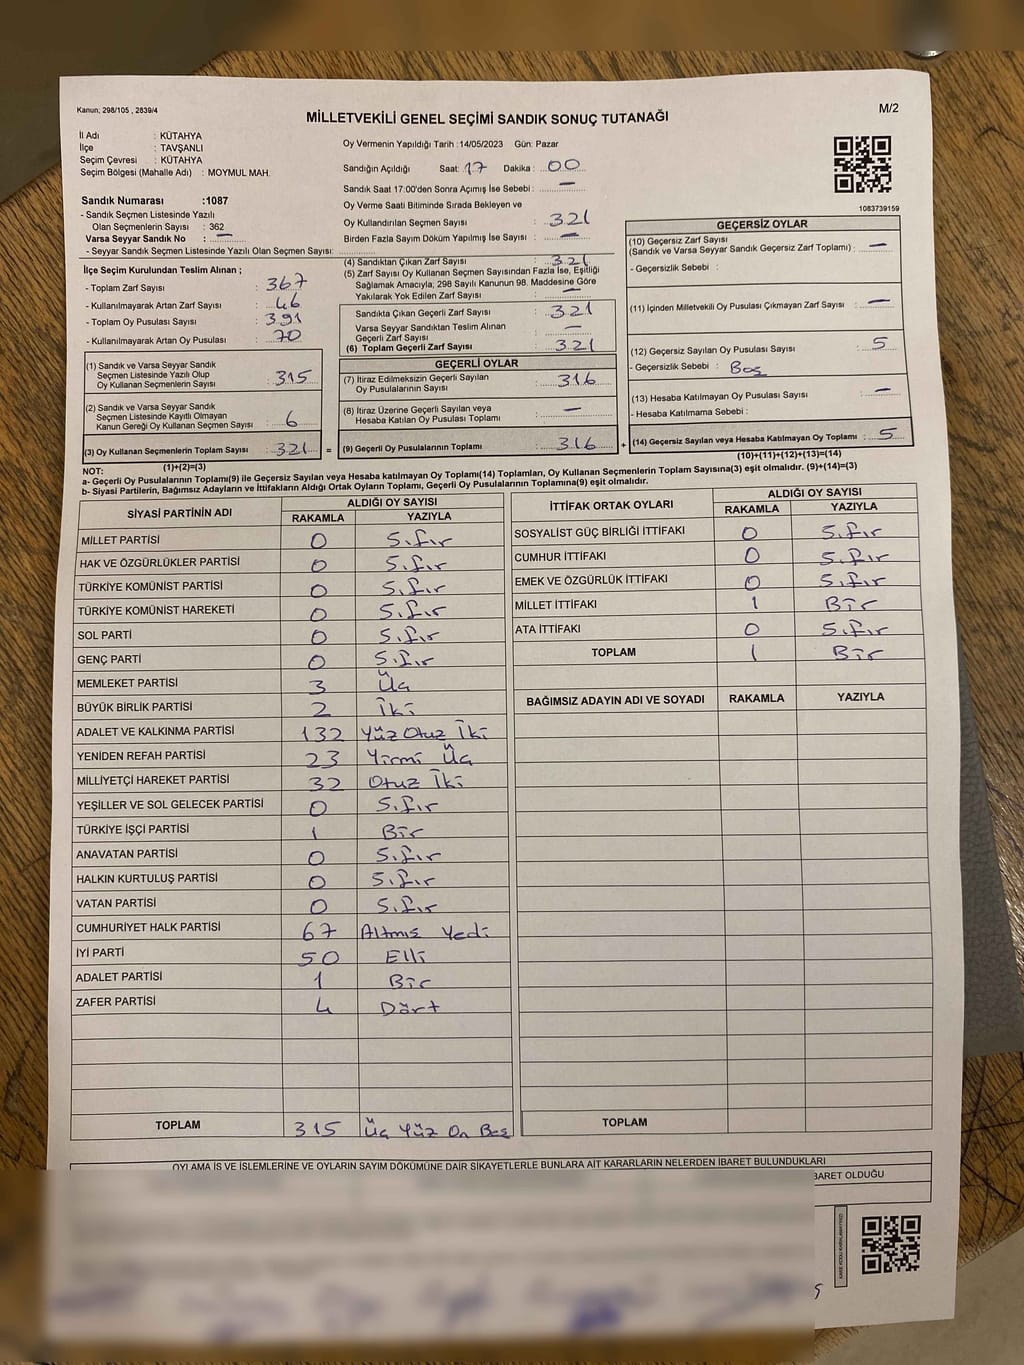 Kanun; 298/105 , 2839/4
MİLLETVEKİLİ GENEL SEÇİMİ SANDIK SONUÇ TUTANAĞI
M/2
İl Adı : KÜTAHYA
İlçe : TAVŞANLI
Seçim Çevresi : KÜTAHYA
Seçim Bölgesi (Mahalle Adı) : MOYMUL MAH.
Sandık Numarası :1087
- Sandık Seçmen Listesinde Yazılı
Olan Seçmenlerin Sayısı : 362
Varsa Seyyar Sandık No : —
- Seyyar Sandık Seçmen Listesinde Yazılı Olan Seçmen Sayısı:
Oy Vermenin Yapıldığı Tarih :14/05/2023 Gün: Pazar
Sandığın Açıldığı Saat: 17 Dakika : 00
Sandık Saat 17:00'den Sonra Açımış İse Sebebi : —
Oy Verme Saati Bitiminde Sırada Bekleyen ve
Oy Kullandırılan Seçmen Sayısı : 321
Birden Fazla Sayım Döküm Yapılmış İse Sayısı : —
1083739159
İlçe Seçim Kurulundan Teslim Alınan ;
- Toplam Zarf Sayısı : 367
- Kullanılmayarak Artan Zarf Sayısı : 46
- Toplam Oy Pusulası Sayısı : 391
- Kullanılmayarak Artan Oy Pusulası : 70
(1) Sandık ve Varsa Seyyar Sandık
Seçmen Listesinde Yazılı Olup
Oy Kullanan Seçmenlerin Sayısı : 315
(2) Sandık ve Varsa Seyyar Sandık
Seçmen Listesinde Kayıtlı Olmayan
Kanun Gereği Oy Kullanan Seçmen Sayısı : 6
(3) Oy Kullanan Seçmenlerin Toplam Sayısı : 321 =
(1)+(2)=(3)
(4) Sandıktan Çıkan Zarf Sayısı : 321
(5) Zarf Sayısı Oy Kullanan Seçmen Sayısından Fazla İse, Eşitliği
Sağlamak Amacıyla, 298 Sayılı Kanunun 98. Maddesine Göre
Yakılarak Yok Edilen Zarf Sayısı : —
Sandıkta Çıkan Geçerli Zarf Sayısı : 321
Varsa Seyyar Sandıktan Teslim Alınan
Geçerli Zarf Sayısı : —
(6) Toplam Geçerli Zarf Sayısı : 321
GEÇERLİ OYLAR
(7) İtiraz Edilmeksizin Geçerli Sayılan
Oy Pusulalarının Sayısı : 316
(8) İtiraz Üzerine Geçerli Sayılan veya
Hesaba Katılan Oy Pusulası Toplamı : —
(9) Geçerli Oy Pusulalarının Toplamı : 316 +
GEÇERSİZ OYLAR
(10) Geçersiz Zarf Sayısı
(Sandık ve Varsa Seyyar Sandık Geçersiz Zarf Toplamı) : —
- Geçersizlik Sebebi :
(11) İçinden Milletvekili Oy Pusulası Çıkmayan Zarf Sayısı : —
(12) Geçersiz Sayılan Oy Pusulası Sayısı : 5
- Geçersizlik Sebebi : Boş
(13) Hesaba Katılmayan Oy Pusulası Sayısı : —
- Hesaba Katılmama Sebebi :
(14) Geçersiz Sayılan veya Hesaba Katılmayan Oy Toplamı : 5
(10)+(11)+(12)+(13)=(14)
NOT:
a- Geçerli Oy Pusulalarının Toplamı(9) ile Geçersiz Sayılan veya Hesaba katılmayan Oy Toplamı(14) Toplamları, Oy Kullanan Seçmenlerin Toplam Sayısına(3) eşit olmalıdır. (9)+(14)=(3)
b- Siyasi Partilerin, Bağımsız Adayların ve İttifakların Aldığı Ortak Oyların Toplamı, Geçerli Oy Pusulalarının Toplamına(9) eşit olmalıdır.
SİYASİ PARTİNİN ADI ALDIĞI OY SAYISI
RAKAMLA YAZIYLA
MİLLET PARTİSİ 0 Sıfır
HAK VE ÖZGÜRLÜKLER PARTİSİ 0 Sıfır
TÜRKİYE KOMÜNİST PARTİSİ 0 Sıfır
TÜRKİYE KOMÜNİST HAREKETİ 0 Sıfır
SOL PARTİ 0 Sıfır
GENÇ PARTİ 0 Sıfır
MEMLEKET PARTİSİ 3 Üç
BÜYÜK BİRLİK PARTİSİ 2 İki
ADALET VE KALKINMA PARTİSİ 132 Yüz Otuz İki
YENİDEN REFAH PARTİSİ 23 Yirmi Üç
MİLLİYETÇİ HAREKET PARTİSİ 32 Otuz İki
YEŞİLLER VE SOL GELECEK PARTİSİ 0 Sıfır
TÜRKİYE İŞÇİ PARTİSİ 1 Bir
ANAVATAN PARTİSİ 0 Sıfır
HALKIN KURTULUŞ PARTİSİ 0 Sıfır
VATAN PARTİSİ 0 Sıfır
CUMHURİYET HALK PARTİSİ 67 Altmış Yedi
İYİ PARTİ 50 Elli
ADALET PARTİSİ 1 Bir
ZAFER PARTİSİ 4 Dört
TOPLAM 315 Üç Yüz On Beş
İTTİFAK ORTAK OYLARI ALDIĞI OY SAYISI
RAKAMLA YAZIYLA
SOSYALİST GÜÇ BİRLİĞİ İTTİFAKI 0 Sıfır
CUMHUR İTTİFAKI 0 Sıfır
EMEK VE ÖZGÜRLÜK İTTİFAKI 0 Sıfır
MİLLET İTTİFAKI 1 Bir
ATA İTTİFAKI 0 Sıfır
TOPLAM 1 Bir
BAĞIMSIZ ADAYIN ADI VE SOYADI RAKAMLA YAZIYLA
TOPLAM
OYLAMA İŞ VE İŞLEMLERİNE VE OYLARIN SAYIM DÖKÜMÜNE DAİR ŞİKAYETLERLE BUNLARA AİT KARARLARIN NELERDEN İBARET BULUNDUKLARI
BARET OLDUĞU